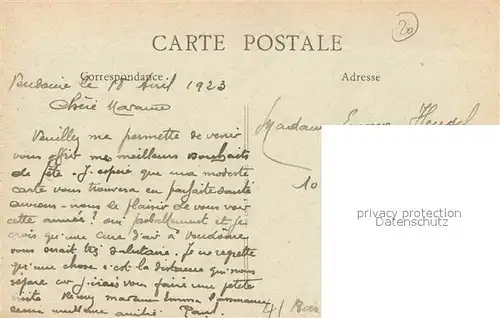 20
CARTE POSTALE
Correspondance
Adresse
Vendôme le 18 Avril 1923
Chère Marraine
Veuillez me permettre de venir
vous offrir mes meilleurs souhaits
de fête. J'espère que ma modeste
carte vous trouvera en parfaite santé
aurons-nous le plaisir de vous voir
cette année? oui probablement et je
crois qu'une cure d'air à Vendôme
vous serait très salutaire. Je ne regrette
qu'une chose c'est la distance qui nous
sépare car j'irais vous faire une petite
visite marraine Emma
meilleure amitié Paul
Madame Emma
10
privacy protection
Datenschutz